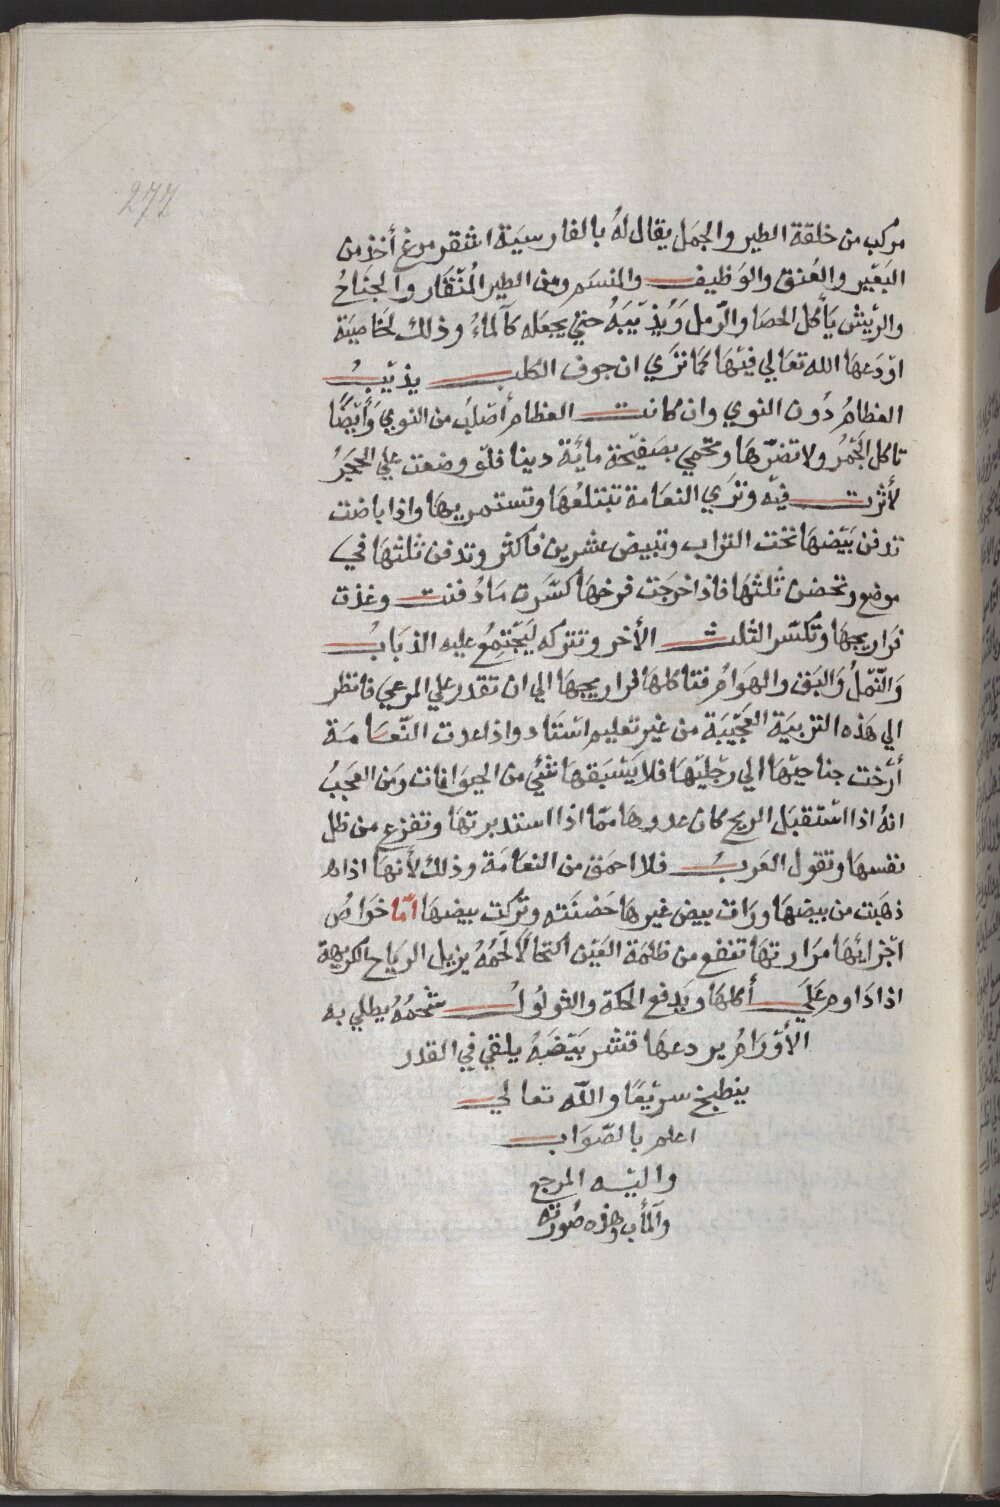 277
مركب من خلقة الطير والجمل يقال لهُ بالفارسيَة اشقر مرغ أخذ من
البَعّير والعُنق والوَظيف والمنسَم ومن الطير المُنّقار والجنَاحُ
والرّيش يَأكل الحصَا والرّمل وَيُذيّبَهُ حتي يجعَله كآلماءُ وذلك لخاصيَة
اوّدَعهَا الله تعَالي فيّهَا كمَا تَرَي ان جوف الكلب يذيّبُ
العظامُ دُون النوي وان كانت العظام أصّلبُ من النوي وَأيّضًا
تاكل الجَمّرُ ولا تضرّهَا ومحَّمي بصَفيّحَة مايَّة دينا فلوّ وضعت علي الحجَرُ
لأثرت فيّه وتَرَي النعَامة تبتلعُهَا وتستمريهَا واذا باضت
تدفن بَيّضهَا تحَت التراب وتبيض عشرين فاكثر وتدفن ثلثهَا في
موضع وتحضن ثُلثهَا فاذا خرجَت فرخهَا كسَّرت مَا دُفنت وغذت
فراريجهَا وتكسّر الثلث الأخر وتتركه ليَجّتمِعُ عليه الذبَابُ
وَالنّمّلُ وَالبَق والهوَامُ فتاكلهَا فراريجهَا الي ان تقدر علي المرعي فانظر
الي هَذه التربيَة العجَيّبَة من غير تعليم استَاد واذا عدت النّعَامَة
أرّخت جناحيّهَا الي رجّليّهَا فلا يَسّبَقهَا شَيّ من الحيوَانات وَمن العجَبُ
انهُ اذا اسّتقبَل الريح كان عدوهَا ممّا اذا استدبرتهَا وتفزع من ظل
نفسهَا وتقول العَربُ فلا احمَق من النعَامَة وذلك لأنهَا اذاه
ذهَبَت من بيضهَا ورَات بيض غيرهَا حَضنَته وترّكت بيضهَا امّا خوَاصُ
اجّزايّهَا مَرَارتهَا تنفع من ظلمَة العَيّن اكتحَالًا لَحمُهُ يزيل الريَاح الكريهة
اذا دَاومَ عَلَي أكلهَا ويَدفع الحكة والثولوُلُ شحَمُهُ يطلي به
الأوّرَامُ يردعهَا قشر بَيّضَهُ يلقي في القدر
ينطبخ سرَيّعًا واللّه تعالي
اعلم بالصّوَاب
واليّه المرجع
وآلمأب وهذه صُورته